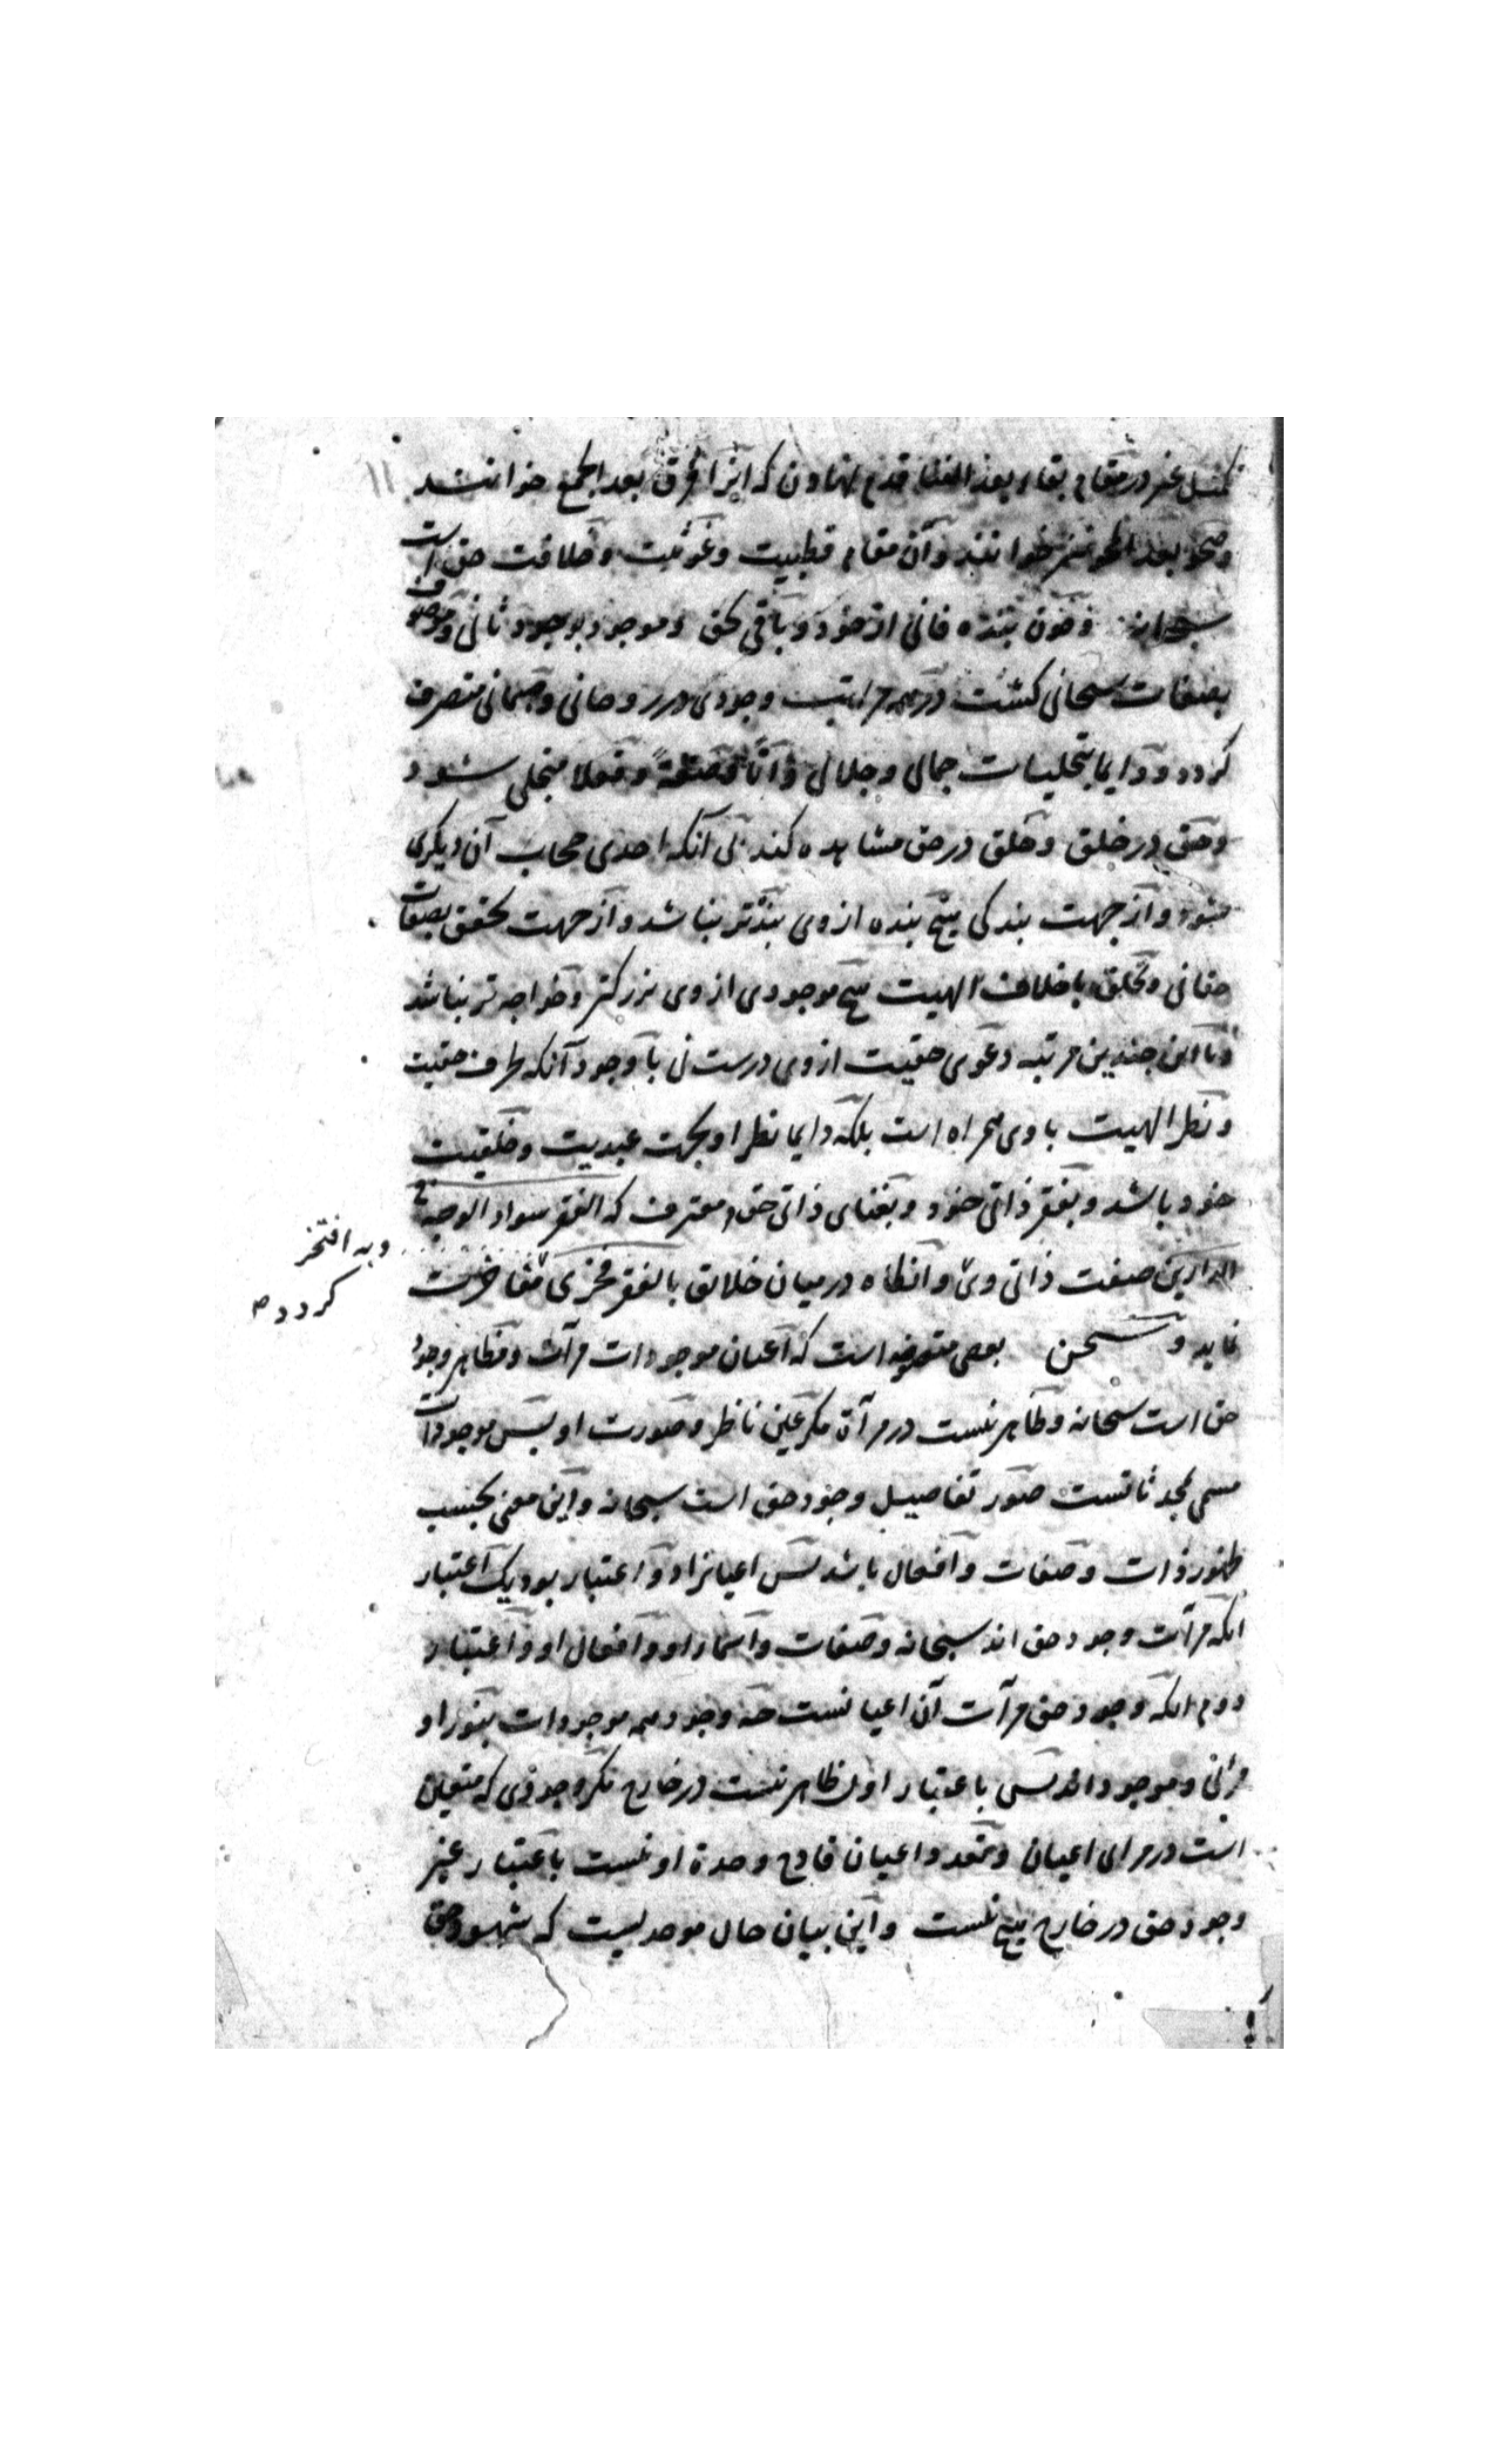 ۱۱
در مقام بقاء بعد الفنا قدم نهادن که آنرا فرق بعد الجمع خوانند
و صحو بعد المحو نیز خوانند و آن مقام قطبیت و غوثیت و خلافت حق است
سبحانه و چون بنده فانی از خود و باقی بحق و موجود بوجود ثانی و موصوف
بصفات سبحانی گشت در همه مراتب وجودی در روحانی و جسمانی متصرف
گردد و دایما بتجلیات جمالی و جلالی ذاتا و صفة و فعلا متجلی شود
و حق در خلق و خلق در حق مشاهده کند بی آنکه احدی حجاب آن دیگری
شود و از جهت بندگی هیچ بنده از وی بنده‌تر نباشد و از جهت تحقق بصفات
حقانی و تخلق باخلاق الهیت هیچ موجودی از وی بزرگتر و خواجه‌تر نباشد
و با این چندین مرتبه دعوی حقیت از وی درست نی با وجود آنکه طرف حقیت
و نظر الهیت با وی همراه است بلکه دایما نظر او بجهت عبدیت و خلقیت
خود باشد و بفقر ذاتی خود و بغنای ذاتی حق معترف که الفقر سواد الوجه فی
الدارین صفت ذاتی وی و آنگاه در میان خلائق بالفقر فخری مفاخرت
وبه افتخر
کردد
نماید و سخن بعضی متصوفه است که اعیان موجودات مرآت و مظاهر وجود
حق است سبحانه و ظاهر نیست در مرآة مگر عین ناظر و صورت او پس موجودات
مسمی بمحدثاتست صور تفاصیل وجود حق است سبحانه و این معنی بحسب
ظهور ذات و صفات و افعال باشد پس اعیانرا دو اعتبار بود یک اعتبار
انکه مرآت وجود حق اند سبحانه و صفات و اسماء او و افعال او و اعتبار
دوم انکه وجود حق مرآت آن اعیانست چه وجود همه موجودات بنور او
مرئی و موجود اند پس باعتبار اول ظاهر نیست در خارج مگر وجودی که متعین
است در مرایای اعیان و تعدد اعیان قادح وحدة او نیست باعتبار غیر
وجود حق در خارج هیچ نیست و این بیان حال موحدیست که شهود حق